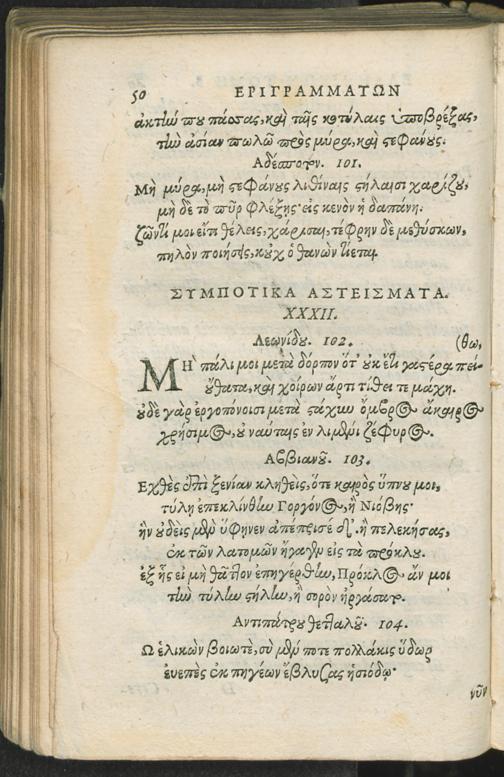 50 ΕΡΙΓΡΑΜΜΑΤΩΝ
ἀκτίω που πάσας, καὶ ταῖς κοτύλαις ὑποβρέξας,
τίω ἀσίαν πωλῶ πρὸς μύρα, καὶ στεφάνους.
Ἀδέσποτον. 101.
Μὴ μύρα, μὴ στεφάνους λιθίναις στήλαισι χαρίζου,
μὴ δὲ τὸ πῦρ φλέξης· εἰς κενὸν ἡ δαπάνη.
ζῶντί μοι εἴ τι θέλεις, χάρισαι, τέφρην δὲ μεθύσκων,
πηλὸν ποιήσεις, κοὐχ ὁ θανὼν πίεται.
ΣΥΜΠΟΤΙΚΑ ΑΣΤΕΙΣΜΑΤΑ.
XXXII.
Λεωνίδου. 102.
(θω,
ΜΗ πάλι μοι μετὰ δόρπον ὅτ' οὐκ ἔτι γαστέρα πεί-
οὔθατα, καὶ χοίρων ἄρτι τίθει τεμάχη.
οὐδὲ γὰρ ἐργοπόνοισι μετὰ στάχυν ὄμβρος ἄκαιρος
χρήσιμος, οὐ ναύταις ἐν λιμένι ζέφυρος.
Λουκιανοῦ. 103.
Εχθὲς ἐπὶ ξενίαν κληθεὶς, ὅτε καιρὸς ὕπνου μοι,
τύλη ἐπεκλίνθην Γοργόνος, ἢ Νιόβης·
ἣν οὐδεὶς μὲν ὕφηνεν ἀπέπρισε δ', ἢ πελεκήσας,
ἐκ τῶν λατομιῶν ἤγαγεν εἰς τὰ πρόκλου.
ἐξ ἧς εἰ μὴ θᾶττον ἐπηγέρθην, Πρόκλος ἄν μοι
τὴν τύλην στήλην, ἢ σορὸν ἠργάσατο.
Αντιπάτρου θετταλοῦ. 104.
Ω ἑλικὼν βοιωτὲ, σὺ μέν ποτε πολλάκις ὕδωρ
ἐυεπὲς ἐκ πηγέων ἔβλυσας ἡσιόδῳ·
νῦν